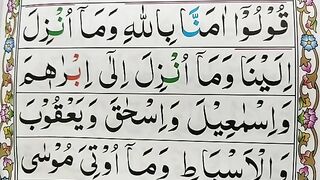 قُوْلُوْۤا اٰمَنَّا بِاللّٰهِ وَمَاۤ اُنْزِلَ
اِلَيْنَا وَمَاۤ اُنْزِلَ اِلٰۤى اِبْرٰهٖمَ
وَاِسْمٰعِيْلَ وَاِسْحٰقَ وَيَعْقُوْبَ
وَالْاَسْبَاطِ وَمَاۤ اُوْتِيَ مُوْسٰى